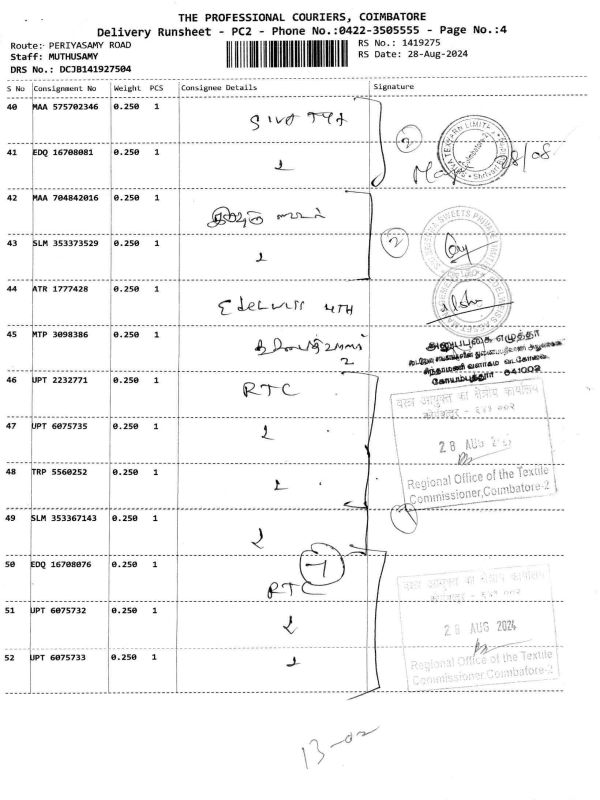 THE PROFESSIONAL COURIERS, COIMBATORE
Delivery Runsheet - PC2 - Phone No.:0422-3505555 - Page No.:4
Route: PERIYASAMY ROAD
Staff: MUTHUSAMY
DRS No.: DCJB141927504
RS No.: 1419275
RS Date: 28-Aug-2024
S No Consignment No Weight PCS Consignee Details Signature
40 MAA 575702346 0.250 1
41 EDQ 16708081 0.250 1
28/08
42 MAA 704842016 0.250 1
43 SLM 353373529 0.250 1
2
44 ATR 1777428 0.250 1
45 MTP 3098386 0.250 1
அனுப்புகை எழுத்தர்
சிந்தாமணி வளாகம் வடகோவை
கோயம்புத்தூர் 641002
46 UPT 2232771 0.250 1 RTC
वस्त्र आयुक्त का क्षेत्रीय कार्यालय
47 UPT 6075735 0.250 1
28 AUG
48 TRP 5560252 0.250 1
Regional Office of the Textile
Commissioner,Coimbatore-2
49 SLM 353367143 0.250 1
50 EDQ 16708076 0.250 1 RTC
51 UPT 6075732 0.250 1
28 AUG 2024
52 UPT 6075733 0.250 1
Regional Office of the Textile
Commissioner,Coimbatore-2